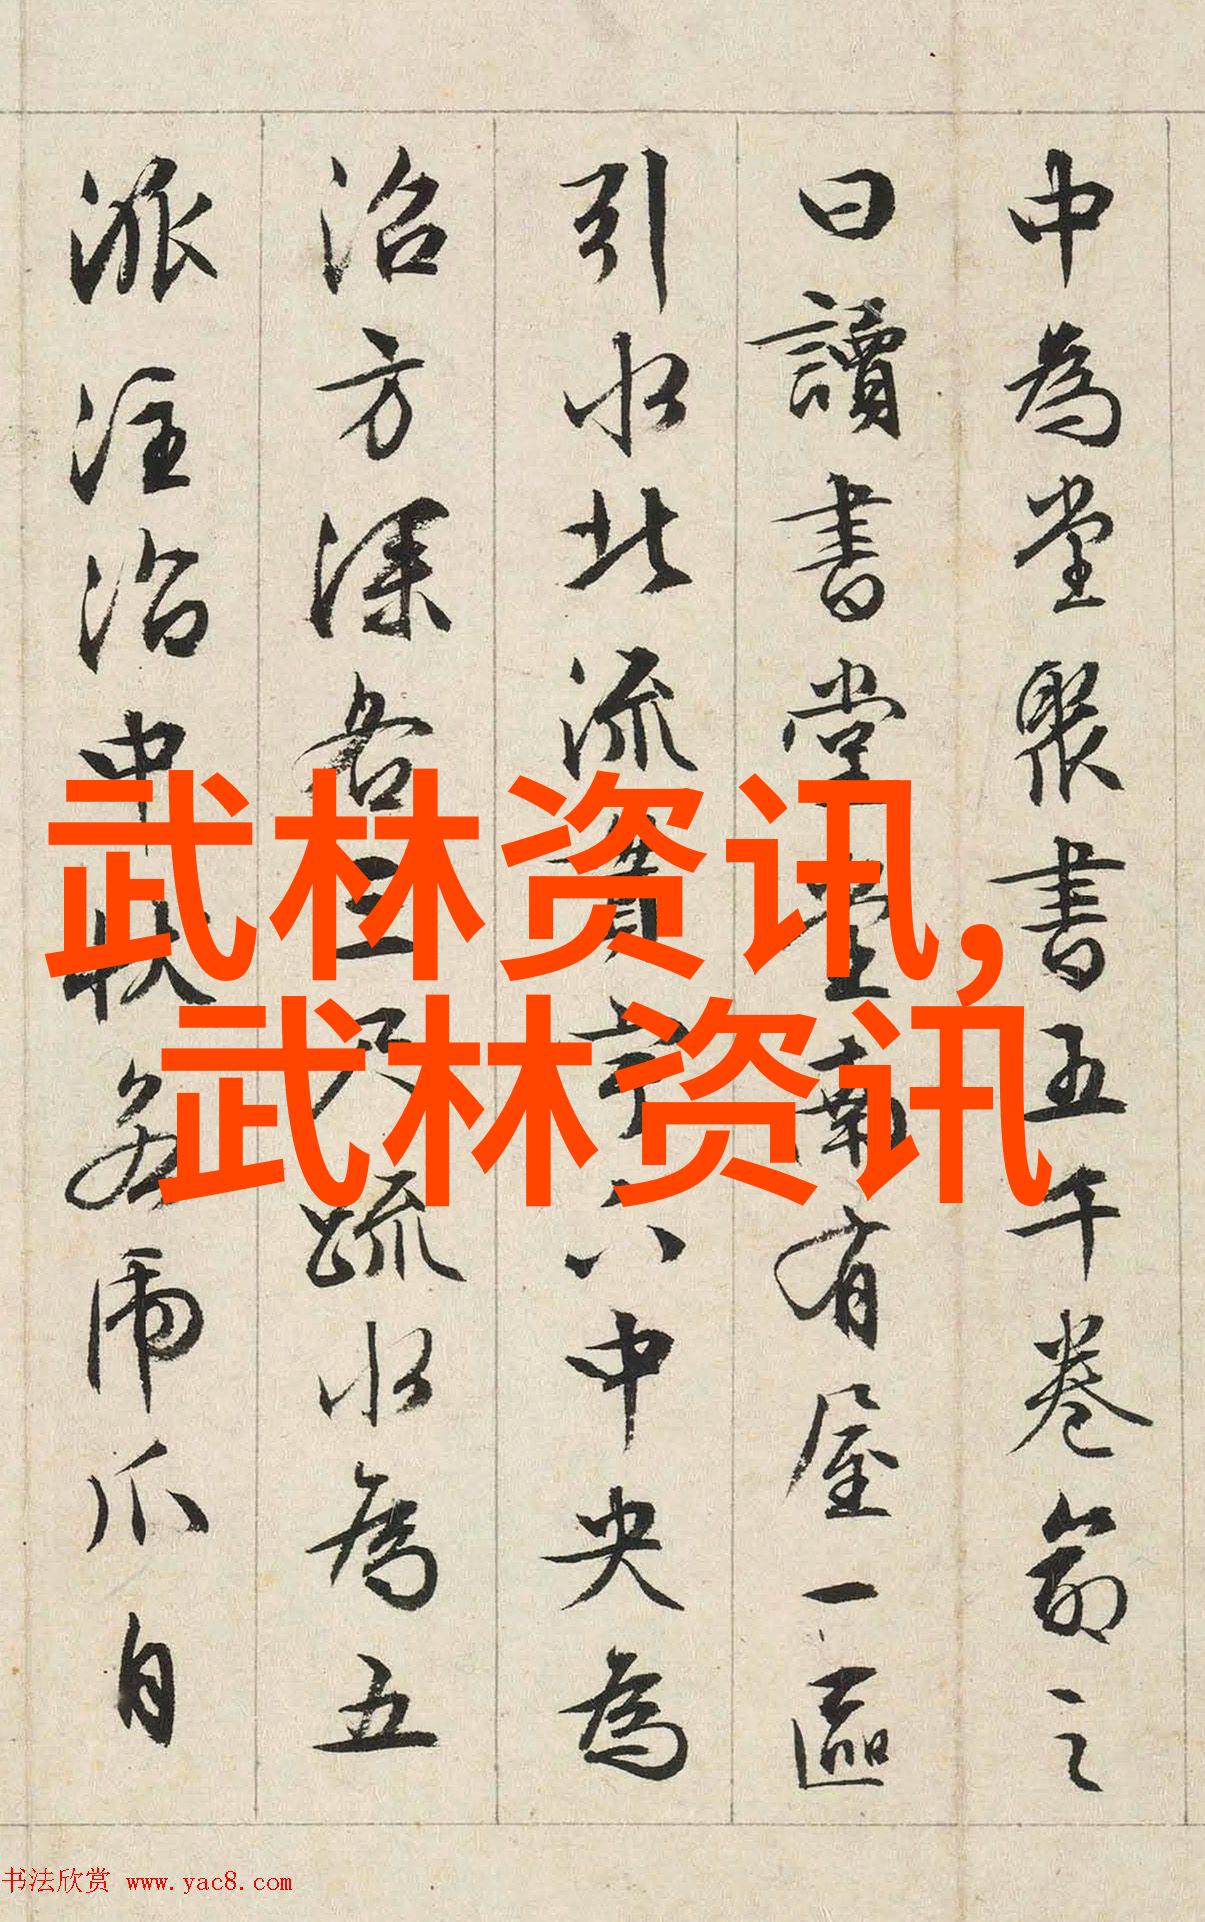 中為堂聚書五千卷命之
曰讀書堂堂南有屋一區
引水北流貫宇下中央為
沼方深各三尺疏水為五
派注沼中狀若虎爪自
武林资讯,
武林资讯
书法欣赏 www.yac8.com